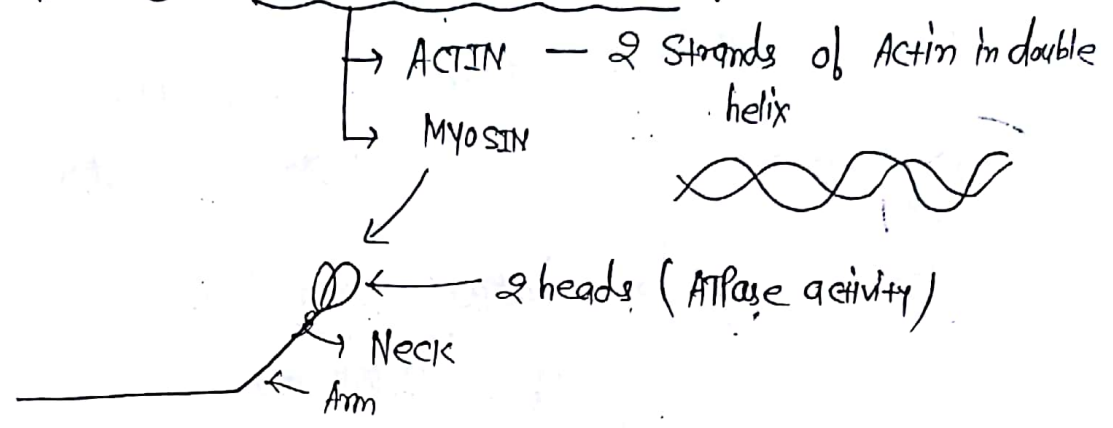 ACTIN — 2 Strands of Actin in double
helix
MYOSIN
2 heads (ATPase activity)
Neck
Arm